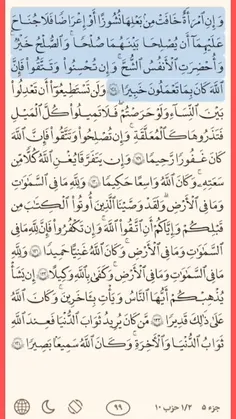 وَإِنِ ٱمْرَأَةٌ خَافَتْ مِنۢ بَعْلِهَا نُشُوزًا أَوْ إِعْرَاضًا فَلَا جُنَاحَ
عَلَيْهِمَآ أَن يُصْلِحَا بَيْنَهُمَا صُلْحًا ۚ وَٱلصُّلْحُ خَيْرٌ ۗ
وَأُحْضِرَتِ ٱلْأَنفُسُ ٱلشُّحَّ ۚ وَإِن تُحْسِنُوا۟ وَتَتَّقُوا۟ فَإِنَّ
ٱللَّهَ كَانَ بِمَا تَعْمَلُونَ خَبِيرًا ﴿١٢٨﴾ وَلَن تَسْتَطِيعُوٓا۟ أَن تَعْدِلُوا۟
بَيْنَ ٱلنِّسَآءِ وَلَوْ حَرَصْتُمْ ۖ فَلَا تَمِيلُوا۟ كُلَّ ٱلْمَيْلِ
فَتَذَرُوهَا كَٱلْمُعَلَّقَةِ ۚ وَإِن تُصْلِحُوا۟ وَتَتَّقُوا۟ فَإِنَّ ٱللَّهَ
كَانَ غَفُورًا رَّحِيمًا ﴿١٢٩﴾ وَإِن يَتَفَرَّقَا يُغْنِ ٱللَّهُ كُلًّا مِّن
سَعَتِهِۦ ۚ وَكَانَ ٱللَّهُ وَٰسِعًا حَكِيمًا ﴿١٣٠﴾ وَلِلَّهِ مَا فِى ٱلسَّمَٰوَٰتِ
وَمَا فِى ٱلْأَرْضِ ۗ وَلَقَدْ وَصَّيْنَا ٱلَّذِينَ أُوتُوا۟ ٱلْكِتَٰبَ مِن
قَبْلِكُمْ وَإِيَّاكُمْ أَنِ ٱتَّقُوا۟ ٱللَّهَ ۚ وَإِن تَكْفُرُوا۟ فَإِنَّ لِلَّهِ مَا فِى
ٱلسَّمَٰوَٰتِ وَمَا فِى ٱلْأَرْضِ ۚ وَكَانَ ٱللَّهُ غَنِيًّا حَمِيدًا ﴿١٣١﴾ وَلِلَّهِ
مَا فِى ٱلسَّمَٰوَٰتِ وَمَا فِى ٱلْأَرْضِ ۚ وَكَفَىٰ بِٱللَّهِ وَكِيلًا ﴿١٣٢﴾ إِن يَشَأْ
يُذْهِبْكُمْ أَيُّهَا ٱلنَّاسُ وَيَأْتِ بِـَٔاخَرِينَ ۚ وَكَانَ ٱللَّهُ
عَلَىٰ ذَٰلِكَ قَدِيرًا ﴿١٣٣﴾ مَّن كَانَ يُرِيدُ ثَوَابَ ٱلدُّنْيَا فَعِندَ ٱللَّهِ
ثَوَابُ ٱلدُّنْيَا وَٱلْأَخِرَةِ ۚ وَكَانَ ٱللَّهُ سَمِيعًۢا بَصِيرًا ﴿١٣٤﴾
جزء ٥ ١/٢ حزب ١٠ ٩٩